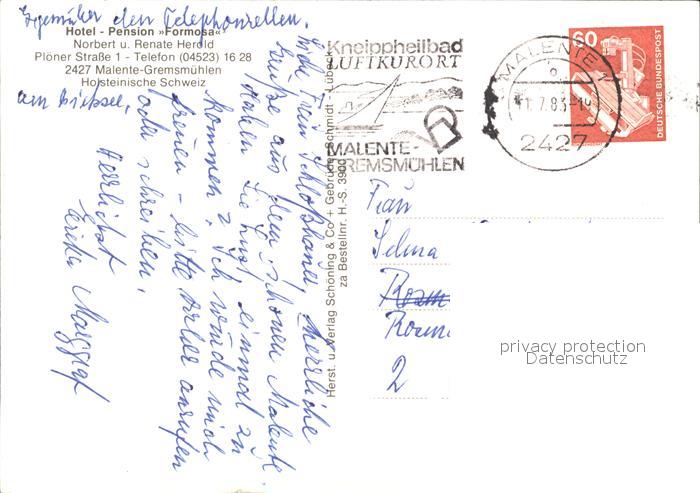 Gegenüber den Telephonzellen.
Hotel - Pension »Formosa«
Norbert u. Renate Herold
Plöner Straße 1 - Telefon (04523) 16 28
2427 Malente-Gremsmühlen
Holsteinische Schweiz
am Dieksee.
Liebe Frau herzliche
Grüße aus dem schönen Malente.
Haben Sie Lust, einmal zu
kommen? Ich würde mich
freuen - bitte vorher anrufen
oder schreiben.
Herzlichst
Erika
Herst. u. Verlag Schöning & Co + Gebrüder Schmidt - Lübeck
za Bestellnr. H.-S. 3900
Kneippheilbad
LUFTKURORT
MALENTE-
GREMSMÜHLEN
MALENTE 1
11.7.83-19
2427
60
DEUTSCHE BUNDESPOST
Frau
Selma
Rosen
2
privacy protection
Datenschutz